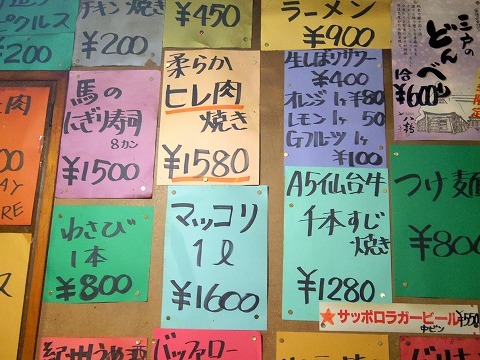 ピクルス
¥200
チキン焼き
¥200
¥450
ラーメン
¥900
三戸の
どんべり
¥600
肉
馬の
にぎり寿司
8カン
¥1500
柔らか
ヒレ肉
焼き
¥1580
生しぼりサワー
¥400
オレンジ1ヶ ¥80
レモン1ヶ 50
Gフルーツ1ヶ
¥100
わさび
1本
¥800
マッコリ
1ℓ
¥1600
A5仙台牛
千本すじ
焼き
¥1280
つけ麺
¥800
★サッポロラガービール
中ビン
¥550
紀州うめ
バッファロー